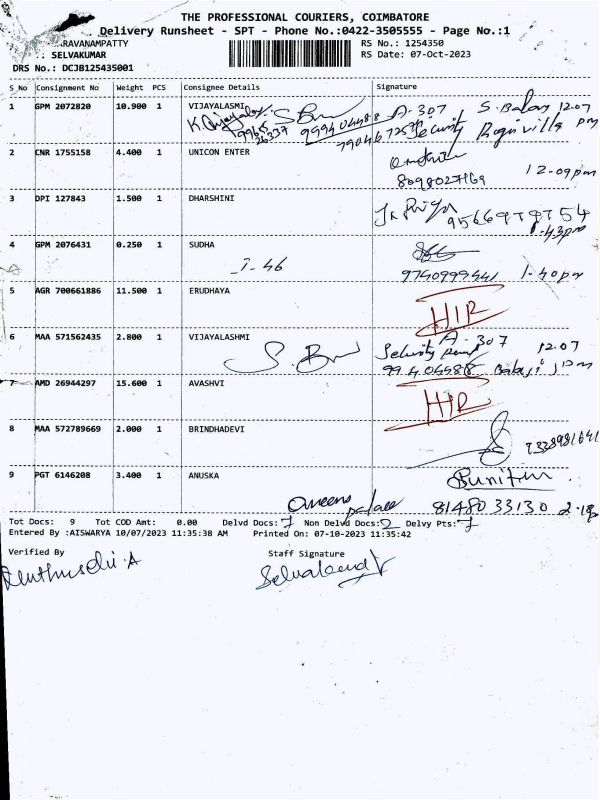 THE PROFESSIONAL COURIERS, COIMBATORE
Delivery Runsheet - SPT - Phone No.:0422-3505555 - Page No.:1
RAVANAMPATTY RS No.: 1254350
SELVAKUMAR RS Date: 07-Oct-2023
DRS No.: DCJB125435001
S_No Consignment No Weight PCS Consignee Details Signature
1 GPM 2072820 10.900 1 VIJAYALASMI A-307 S. Balaji 12.07 pm
Security
2 CNR 1755158 4.400 1 UNICON ENTER
12-09pm
3 DPI 127843 1.500 1 DHARSHINI
4 GPM 2076431 0.250 1 SUDHA
I-46 9740999441 1-40pm
5 AGR 700661886 11.500 1 ERUDHAYA
HIR
6 MAA 571562435 2.800 1 VIJAYALASHMI A-307 12.07 pm
Babuji
7 AMD 26944297 15.600 1 AVASHVI
HIR
8 MAA 572789669 2.000 1 BRINDHADEVI
9 PGT 6146208 3.400 1 ANUSKA
Queens palace 81480 33130
Tot Docs: 9 Tot COD Amt: 0.00 Delvd Docs: 7 Non Delvd Docs: 2 Delvy Pts: 7
Entered By :AISWARYA 10/07/2023 11:35:38 AM Printed On: 07-10-2023 11:35:42
Verified By Staff Signature